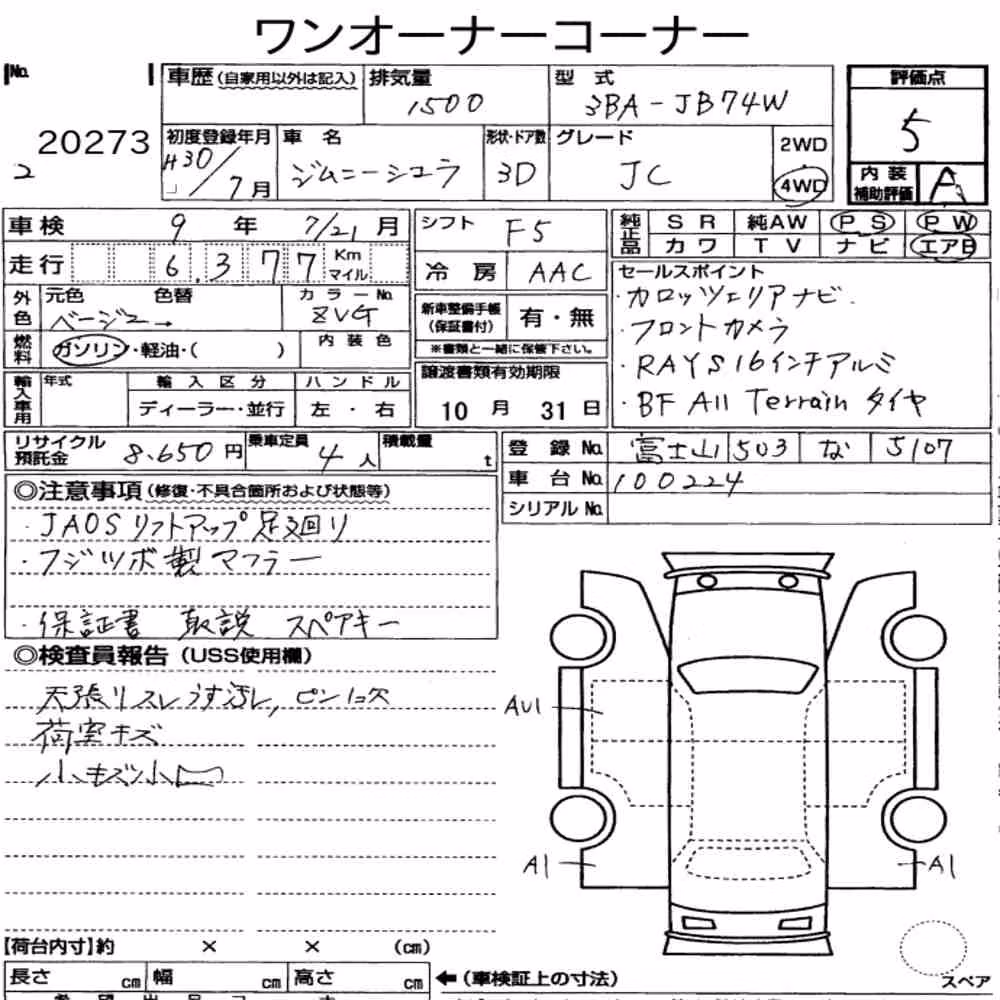 ワンオーナーコーナー
No.
20273
2
車歴(自家用以外は記入)
排気量
1500
型 式
3BA-JB74W
評価点
5
内装補助評価
A
初度登録年月
H30/7月
車 名
ジムニーシエラ
形状・ドア数
3D
グレード
JC
2WD
4WD
車検 9年 7/21月
走行 6,377 Km マイル
外色
元色
ベージュ
色替
カラーNo.
ZVG
燃料
ガソリン・軽油・( )
内装色
輸入車用
年式
輸入区分
ディーラー・並行
ハンドル
左・右
シフト F5
冷房 AAC
新車整備手帳(保証書付) 有・無
※書類と一緒に保管下さい。
譲渡書類有効期限
10月 31日
純正品
SR 純AW PS PW
カワ TV ナビ エアB
セールスポイント
・カロッツェリアナビ.
・フロントカメラ
・RAYS16インチアルミ
・BF All Terrain タイヤ
リサイクル預託金 8,650円
乗車定員 4人
積載量 t
登録No. 富士山 503 な 5107
車台No. 100224
シリアルNo.
◎注意事項(修復・不具合箇所および状態等)
・JAOSリフトアップ足廻り
・フジツボ製マフラー
・保証書 取説 スペアキー
◎検査員報告(USS使用欄)
天張リスレうす汚レ,ピン欠
荷室キズ
小キズ小凹
AU1
A1
A1
【荷台内寸】約 × × (cm)
長さ cm 幅 cm 高さ cm
←(車検証上の寸法)
スペア